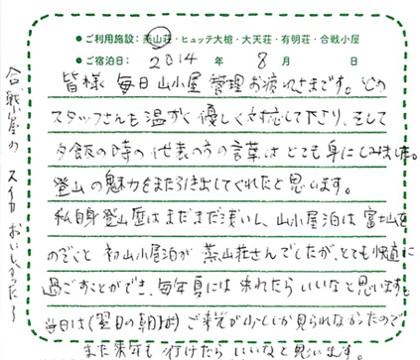 ●ご利用施設：燕山荘・ヒュッテ大槍・大天荘・有明荘・合戦小屋
●ご宿泊日： 2014 年 8 月 日
皆様 毎日 山小屋 管理お疲れさまです。どの
スタッフさんも温かく優しく対応して下さり、そして
夕飯の時の代表の方の言葉はとても身にしみました。
登山の魅力をまた引き出してくれたと思います。
私自身登山歴はまだまだ浅いし、山小屋泊は富士山を
のぞくと 初山小屋泊が 燕山荘さんでしたが、とても快適に
過ごすことができ、毎年夏には来れたらいいなと思います。
当日は(翌日の朝は) ご来光が少ししか見られなかったので
また来年も 行けたら いいなと思います。
合戦小屋の スイカ おいしかった〜